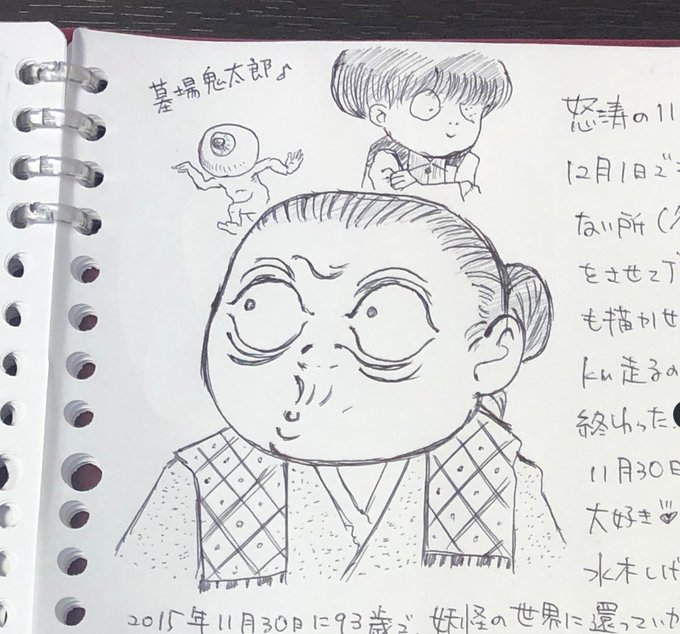 墓場鬼太郎♪
怒涛の11
12月1日で
ない所(
をさせて
も描かせ
km走るの
終わった
11月30日
大好き♥
水木しげ
2015年11月30日に93歳で、妖怪の世界に還っていか